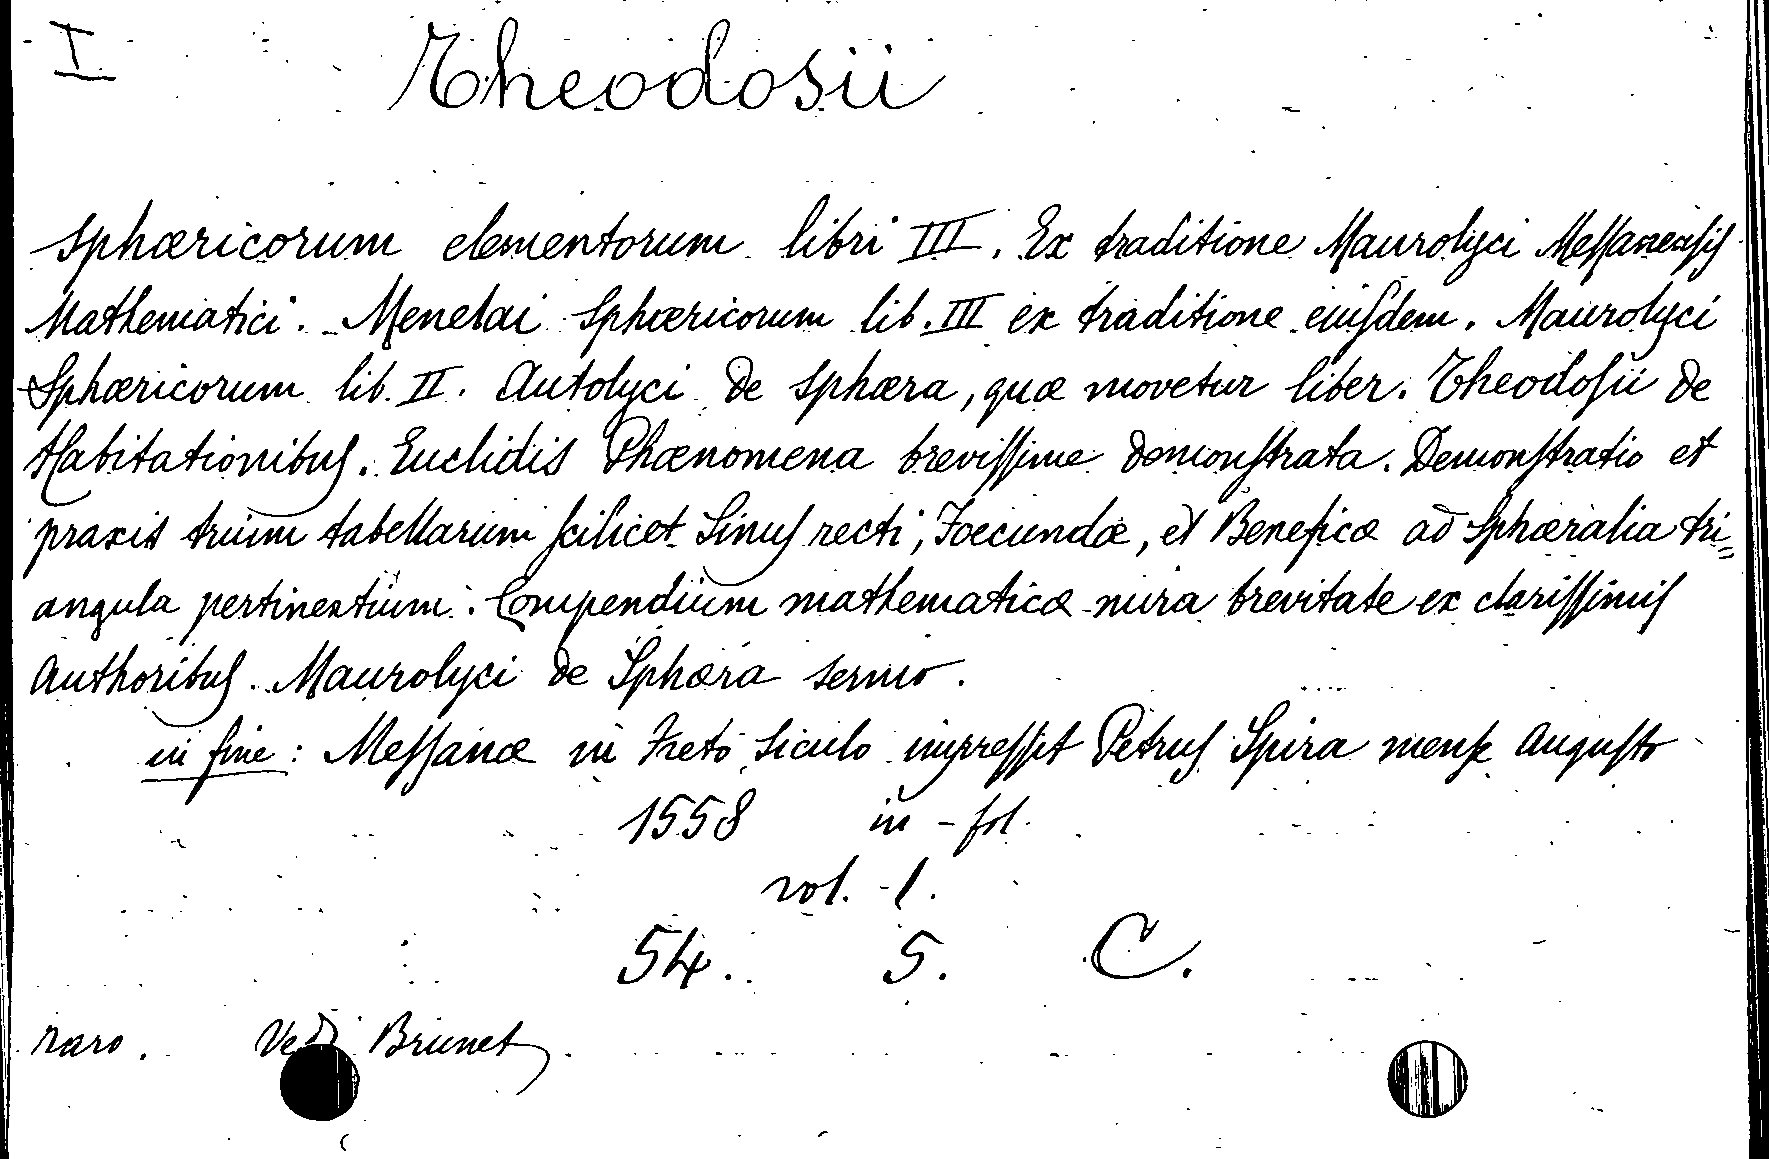 I
Theodosii
Sphæricorum elementorum libri III. Ex traditione Maurolyci Messanensis
Mathematici. Menelai Sphæricorum lib. III ex traditione eiusdem. Maurolyci
Sphæricorum lib. II. Autolyci de Sphæra, quæ movetur liber. Theodosii de
Habitationibus. Euclidis Phænomena brevissime demonstrata. Demonstratio et
praxis trium tabellarum scilicet Sinus recti, Foecundæ, et Beneficæ ad Sphæralia tri=
angula pertinentium. Compendium mathematicæ mira brevitate ex clarissimis
Authoribus. Maurolyci de Sphæra sermo.
in fine: Messanæ in Freto Siculo impressit Petrus Spira mense Augusto
1558 in-fol.
vol. 1.
54. 5. C.
raro. Vedi Brunet